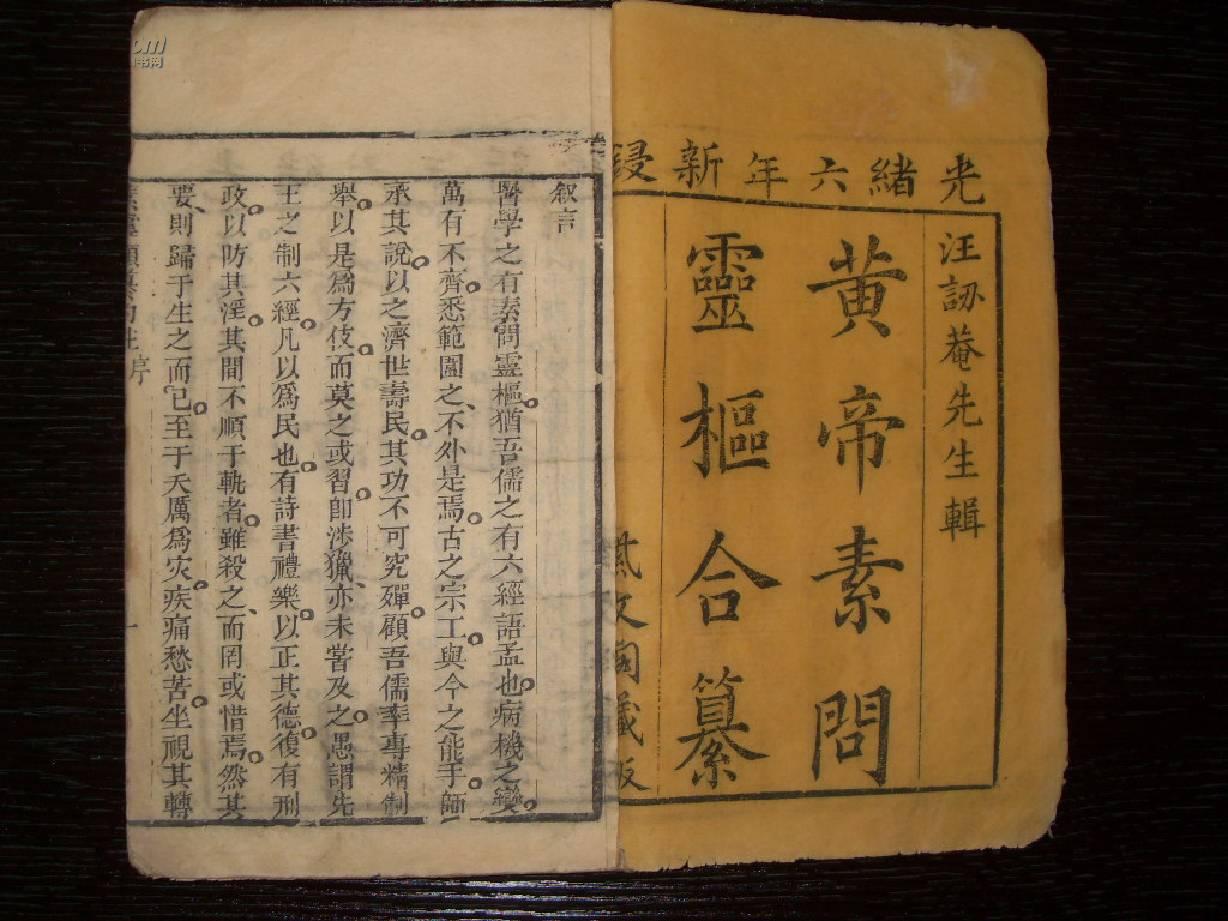 光緒六年新鋟
汪訒菴先生輯
黃帝素問
靈樞合纂
文閣藏板
叙言
醫學之有素問靈樞猶吾儒之有六經語孟也病機之變
萬有不齊悉範圍之不外是焉古之宗工與今之能手師
承其說以之濟世壽民其功不可究殫顧吾儒率專精制
舉以是爲方伎而莫之或習卽涉獵亦未嘗及之愚謂先
王之制六經凡以爲民也有詩書禮樂以正其德復有刑
政以防其淫其間不順于軌者雖殺之而罔或惜焉然其
要則歸于生之而已至于夭厲爲灾疾痛愁苦坐視其轉
序
一